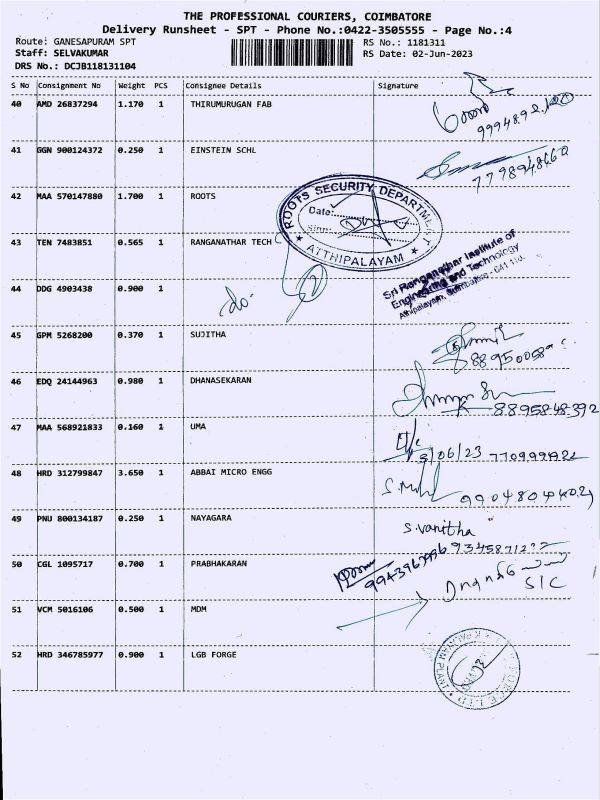 THE PROFESSIONAL COURIERS, COIMBATORE
Delivery Runsheet - SPT - Phone No.:0422-3505555 - Page No.:4
Route: GANESAPURAM SPT
RS No.: 1181311
Staff: SELVAKUMAR
RS Date: 02-Jun-2023
DRS No.: DCJB118131104
S No Consignment No Weight PCS Consignee Details Signature
40 AMD 26837294 1.170 1 THIRUMURUGAN FAB
41 GGN 900124372 0.250 1 EINSTEIN SCHL
42 MAA 570147880 1.700 1 ROOTS
ROOTS SECURITY DEPARTMENT
Date:
Sign:
ATTHIPALAYAM
43 TEN 7483851 0.565 1 RANGANATHAR TECH
Sri Ranganathar Institute of
Engineering and Technology
Athipalayam, Coimbatore - 641 110.
44 DDG 4903438 0.900 1
do
45 GPM 5268200 0.370 1 SUJITHA
46 EDQ 24144963 0.980 1 DHANASEKARAN
8895848392
47 MAA 568921833 0.160 1 UMA
48 HRD 312799847 3.650 1 ABBAI MICRO ENGG
49 PNU 800134187 0.250 1 NAYAGARA
S.vanitha
50 CGL 1095717 0.700 1 PRABHAKARAN
SIC
51 VCM 5016106 0.500 1 MDM
52 HRD 346785977 0.900 1 LGB FORGE